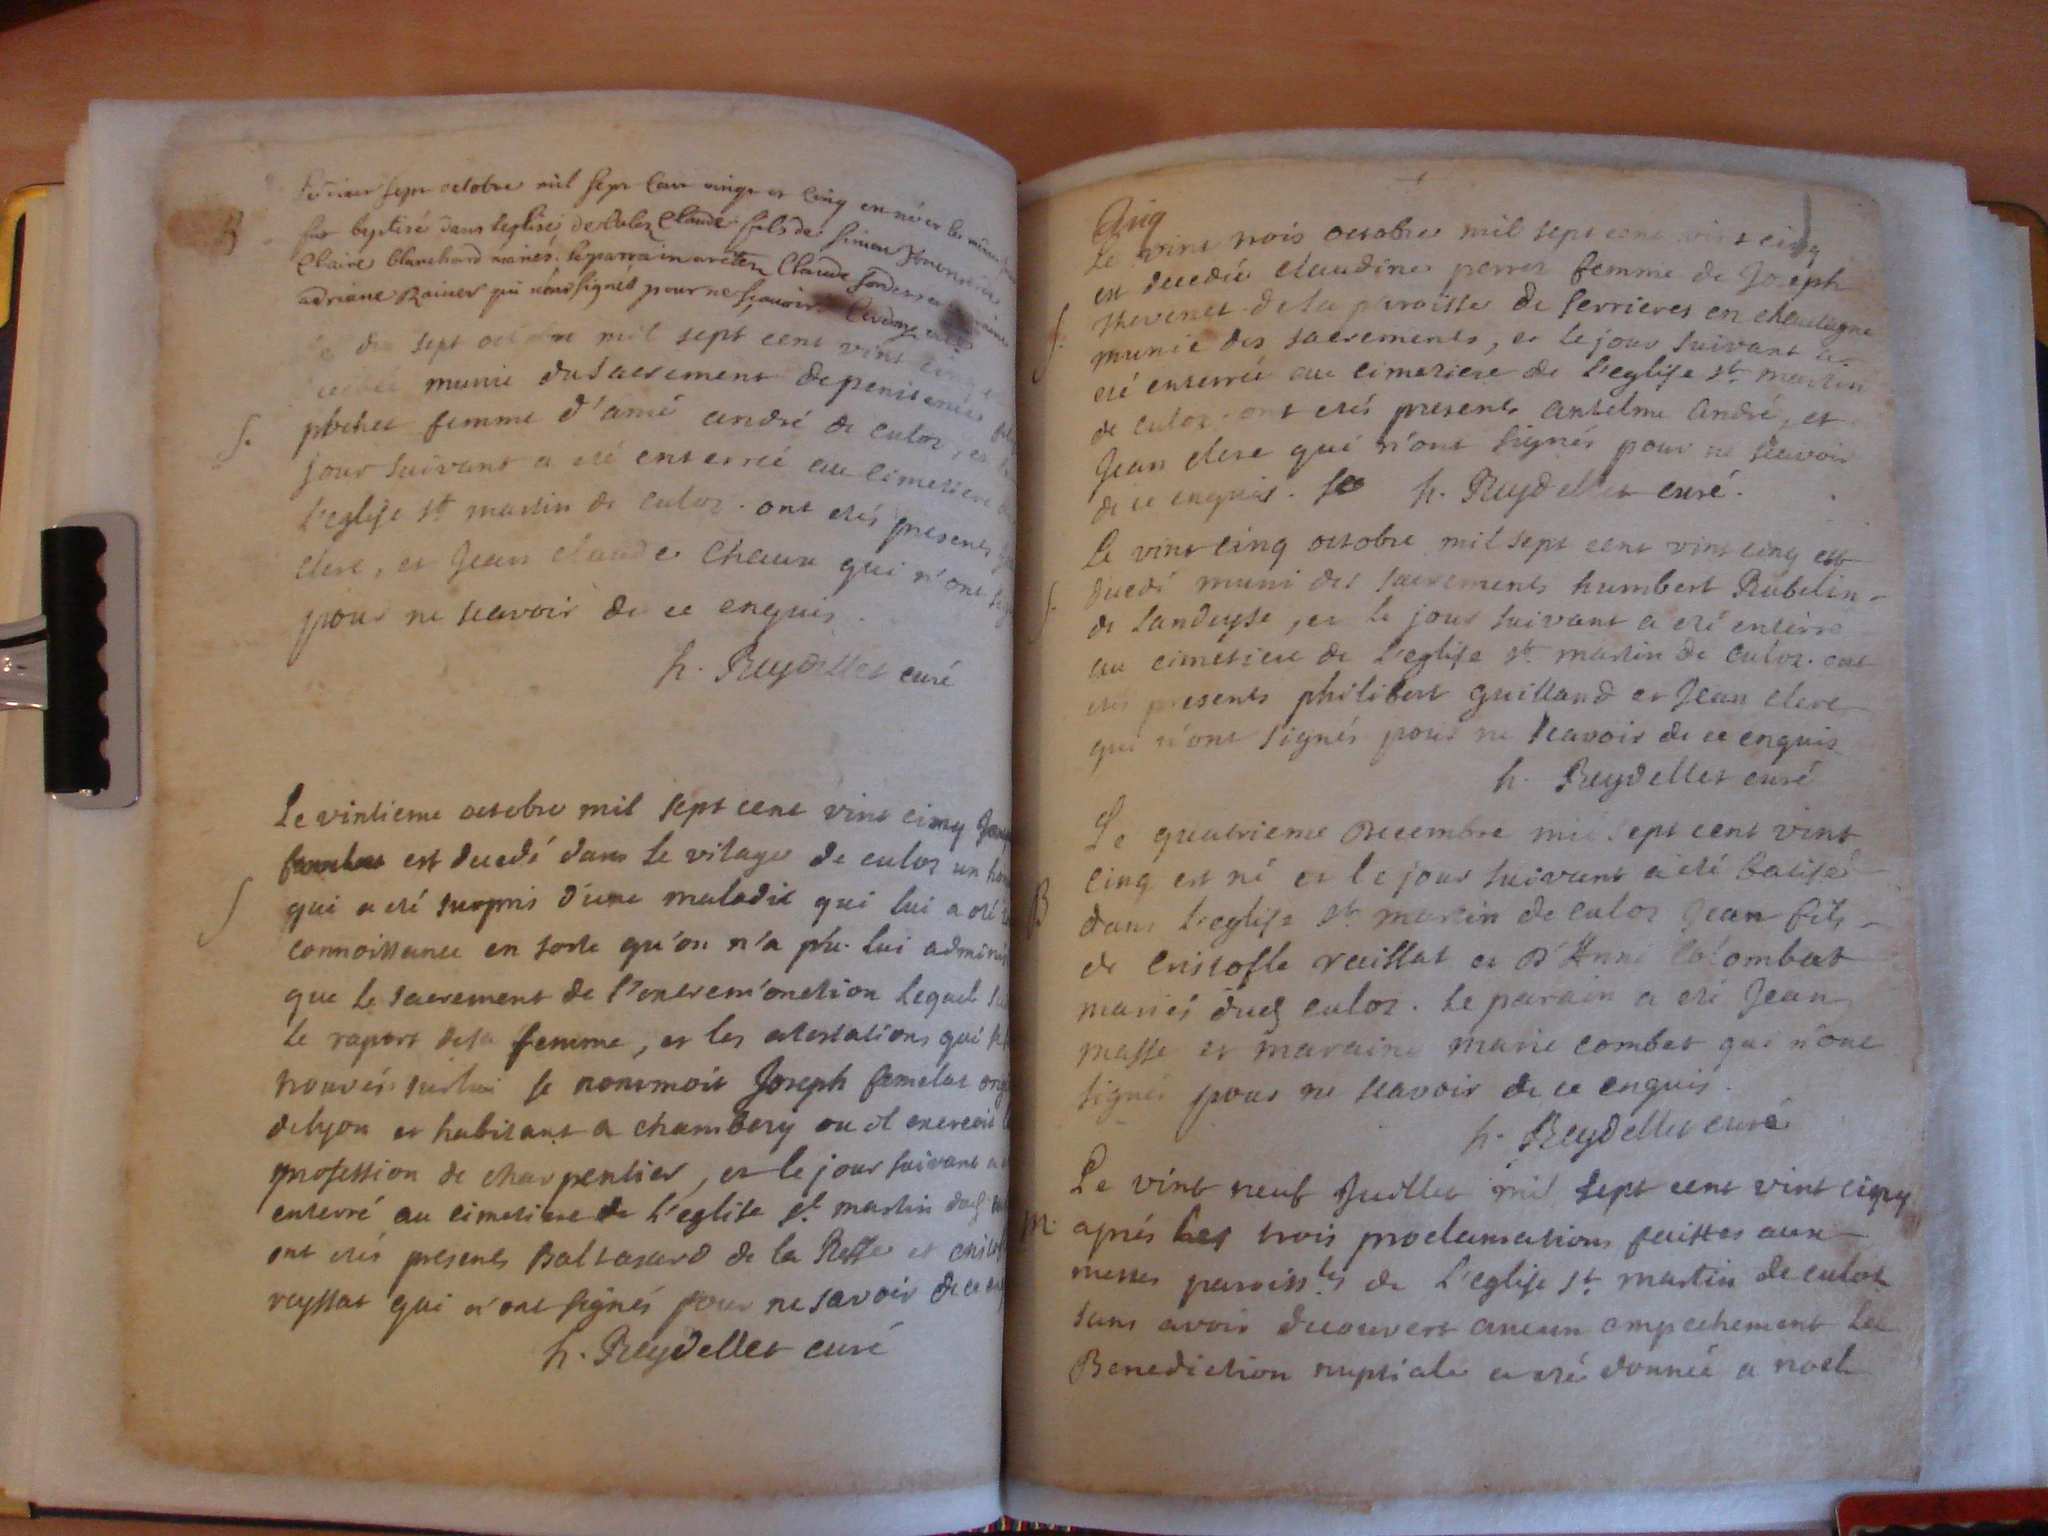 B
sept octobre mil sept cent vingt et cinq en né et le même
fut baptisé dans leglise de Culoz Claude fils de simon
Claire blanchard mariés. le parrain a ete Claude
adriane Rainer qui n'ont signés pour ne sçauoir
Le dix sept octobre mil sept cent vint cinq
munie du sacrement de penitence
S.
pochet femme d'amé andré de culoz, et le
jour suivant a eté enterreé au cimetiere
L'eglise st martin de culoz. ont etés presents
clerc, et Jean claude Chaux qui n'ont
pour ne scavoir de ce enquis.
h. Reydellet curé
Le vintieme octobre mil sept cent vint cinq
est decedé dans le vilage de culoz un
S
qui a eté surpris d'une maladie qui lui a oté
connoissance en sorte qu'on n'a pû lui
que le sacrement de l'extrem'onction lequel
le raport de sa femme, et les atestations qui
trouvés sur lui se nommoit Joseph famelat
de lyon et habitant a chambery ou il exercoit
profession de charpentier, et le jour suivant a
enterré au cimetiere de l'eglise st. martin dud
ont etés presents Baltasard de la Reffe et
reyssat qui n'ont signés pour ne savoir de ce
h. Reydellet curé
Le vint trois octobre mil sept cent vint cinq
est decedée claudine perret femme de Joseph
thevenet de la paroisse de serrieres en chautagne
S.
munie des sacrements, et le jour suivant a
eté enterrée au cimetiere de l'eglise st. martin
de culoz. ont etés presents antelme andré, et
Jean clerc qui n'ont signés pour ne scavoir
de ce enquis. h. Reydellet curé.
Le vint cinq octobre mil sept cent vint cinq est
S.
decedé muni des sacrements humbert Rubelin
de landeyse, et le jour suivant a eté enterré
au cimetiere de l'eglise st. martin de culoz. ont
etés presents philibert guilland et Jean clerc
qui n'ont signés pour ne scavoir de ce enquis
h. Reydellet curé
Le quatrieme decembre mil sept cent vint
cinq est né et le jour suivant a eté batisé
B
dans l'eglise st. martin de culoz Jean fils
de cristofle raissat et d'Anne Colombat
mariés dud culoz. le parain a eté Jean
masse et maraine marie combet qui n'ont
signés pour ne scavoir de ce enquis.
h. Reydellet curé
Le vint neuf Juillet mil sept cent vint cinq
m.
aprés les trois proclamations faittes aux
messes paroissles de l'eglise st. martin de culoz
sans avoir decouvert aucun empechement la
Benediction nuptiale a eté donnée a noel